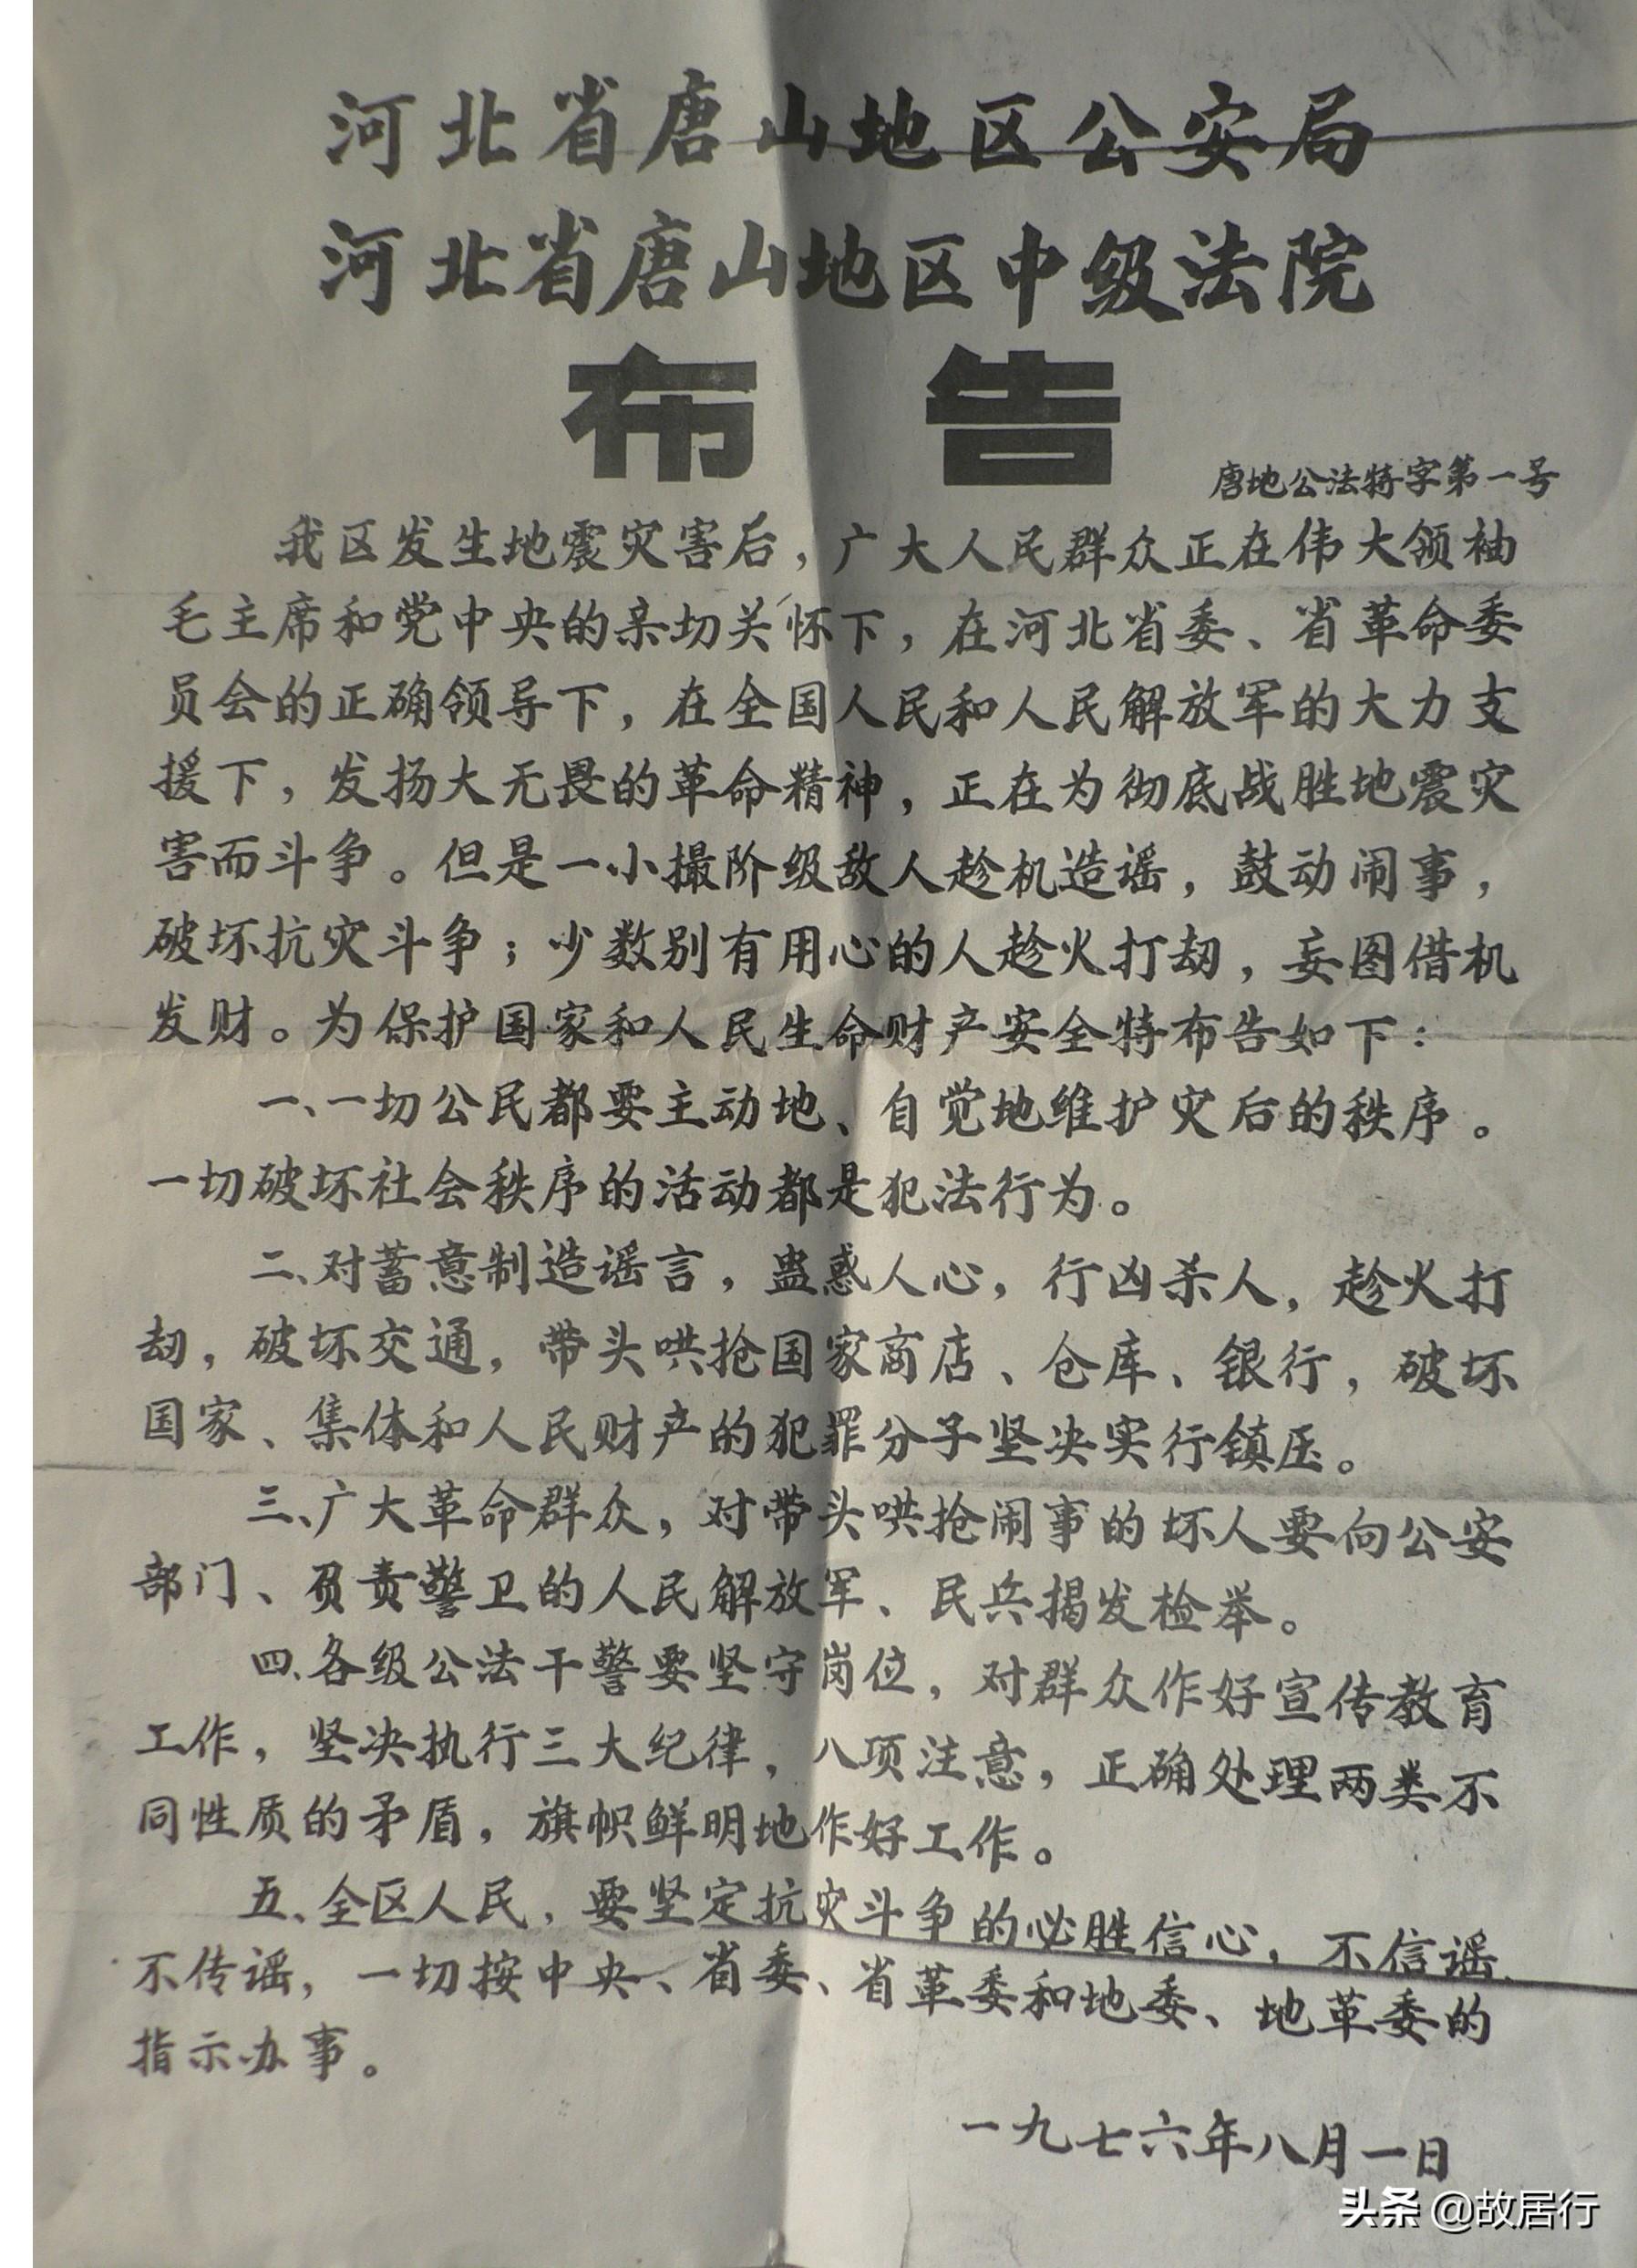 河北省唐山地区公安局
河北省唐山地区中级法院
布告
唐地公法特字第一号
我区发生地震灾害后，广大人民群众正在伟大领袖
毛主席和党中央的亲切关怀下，在河北省委、省革命委
员会的正确领导下，在全国人民和人民解放军的大力支
援下，发扬大无畏的革命精神，正在为彻底战胜地震灾
害而斗争。但是一小撮阶级敌人趁机造谣，鼓动闹事，
破坏抗灾斗争；少数别有用心的人趁火打劫，妄图借机
发财。为保护国家和人民生命财产安全特布告如下：
一、一切公民都要主动地、自觉地维护灾后的秩序。
一切破坏社会秩序的活动都是犯法行为。
二、对蓄意制造谣言，蛊惑人心，行凶杀人，趁火打
劫，破坏交通，带头哄抢国家商店、仓库、银行，破坏
国家、集体和人民财产的犯罪分子坚决实行镇压。
三、广大革命群众，对带头哄抢闹事的坏人要向公安
部门、负责警卫的人民解放军、民兵揭发检举。
四、各级公法干警要坚守岗位，对群众作好宣传教育
工作，坚决执行三大纪律，八项注意，正确处理两类不
同性质的矛盾，旗帜鲜明地作好工作。
五、全区人民，要坚定抗灾斗争的必胜信心，不信谣、
不传谣，一切按中央、省委、省革委和地委、地革委的
指示办事。
一九七六年八月一日
头条 @故居行